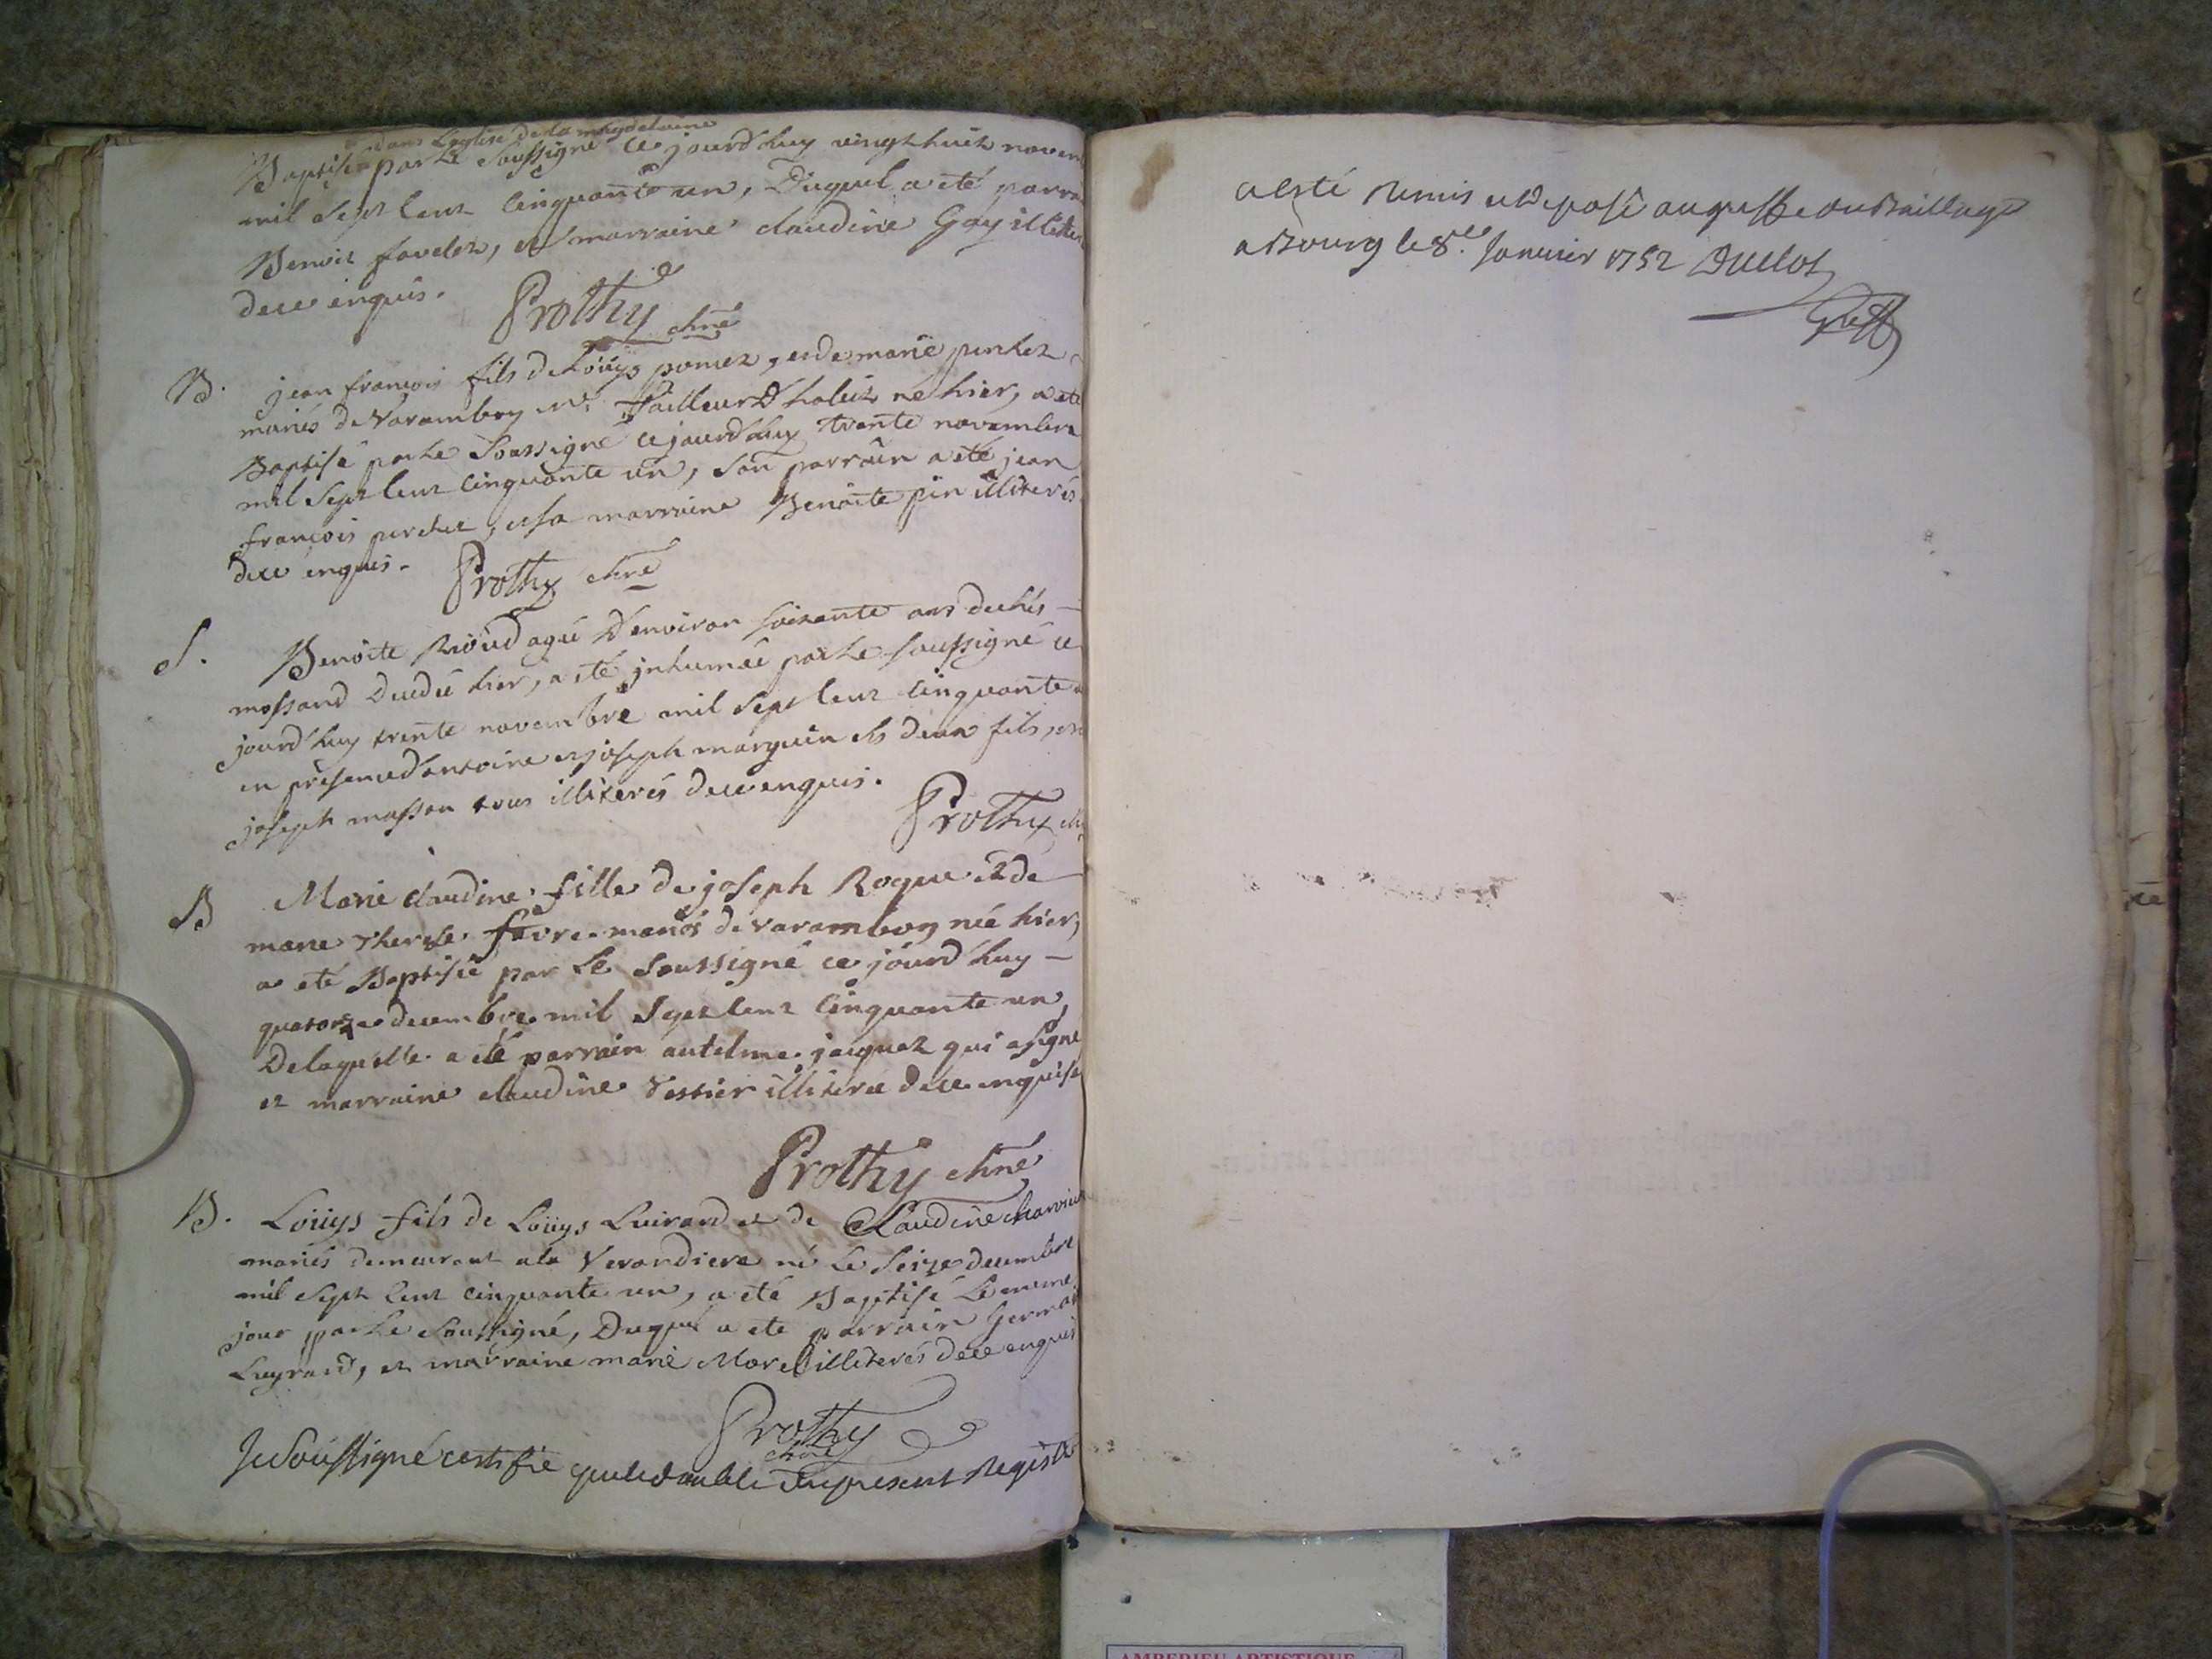 dans Leglise de la magdelaine
Baptisé par Le Soussigné ce jourd'huy vingt huit novem
mil sept cent cinquante un, Duquel a eté parra
Benoit favelet, et marraine claudine Gay illiter
de ce enquis.
Prothy chne
B. jean françois fils de Loüys pomet, et de marie
mariés de Varambon Me Tailleur D'habits né hier, a eté
Baptisé par Le Soussigné ce jourd'huy trente novembre
mil sept cent cinquante un, son parrain a eté jean
françois perchet, et sa marraine Benoite pin illiterés
de ce enquis.
Prothy chne
S. Benoite agée D'environ soixante ans de chés
massand decedée hier, a eté inhumée par Le soussigné ce
jourd'huy trente novembre mil sept cent cinquante
en présence d'antoine et joseph marguin ses deux fils, et
joseph masson tous illiterés de ce enquis.
Prothy
B Marie claudine fille de joseph Rogue et de
marie therese favre mariés de varambon née hier,
a eté Baptisée par Le Soussigné ce jourd'huy
quatorze decembre mil sept cent cinquante un,
De laquelle a eté parrain antelme jacquet qui a signé
et marraine claudine Vessier illiterée de ce enquise
Prothy chne
B. Loüys fils de Loüys Luirard et de Claudine
mariés demeurant a la Verandiere né Le seize decembre
mil sept cent cinquante un, a eté Baptisé Le meme
jour par Le Soussigné, Duquel a ete parrain Germai
Luyrard, et marraine marie Morel illiterés de ce enquis
Prothy
chne
Je Soussigné certifie que le double du present Registre
a esté remis et deposé au greffe du Bailliage
a Bourg le 8e. Janvier 1752 Duclot
Greff
AMBERIEU ARTISTIQUE